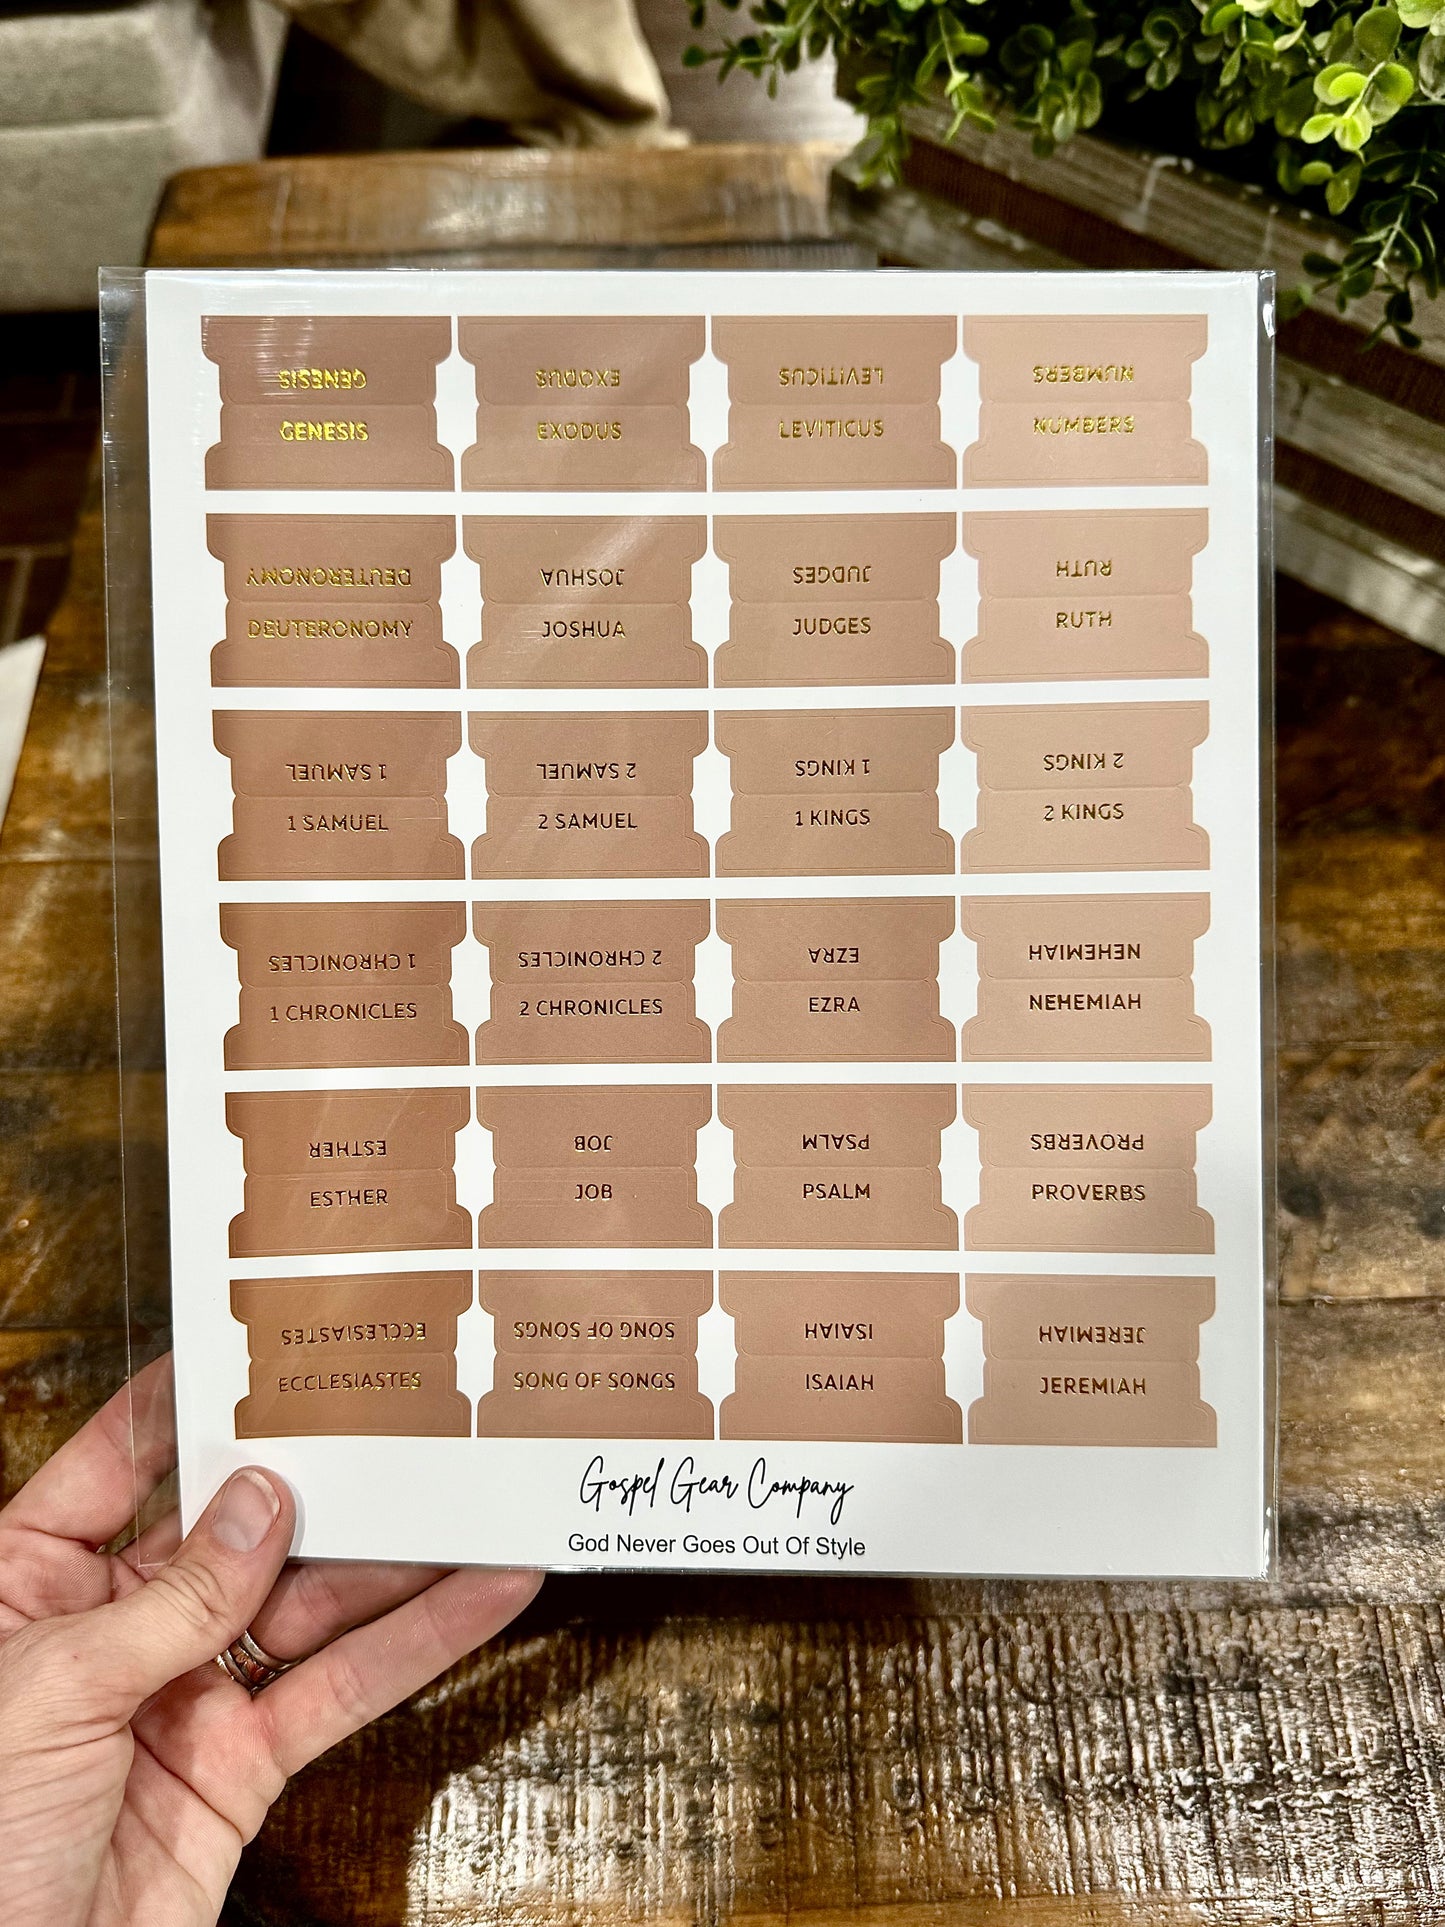 GENESIS EXODUS LEVITICUS NUMBERS
GENESIS EXODUS LEVITICUS NUMBERS
DEUTERONOMY JOSHUA JUDGES RUTH
DEUTERONOMY JOSHUA JUDGES RUTH
1 SAMUEL 2 SAMUEL 1 KINGS 2 KINGS
1 SAMUEL 2 SAMUEL 1 KINGS 2 KINGS
1 CHRONICLES 2 CHRONICLES EZRA NEHEMIAH
1 CHRONICLES 2 CHRONICLES EZRA NEHEMIAH
ESTHER JOB PSALM PROVERBS
ESTHER JOB PSALM PROVERBS
ECCLESIASTES SONG OF SONGS ISAIAH JEREMIAH
ECCLESIASTES SONG OF SONGS ISAIAH JEREMIAH
Gospel Gear Company
God Never Goes Out Of Style